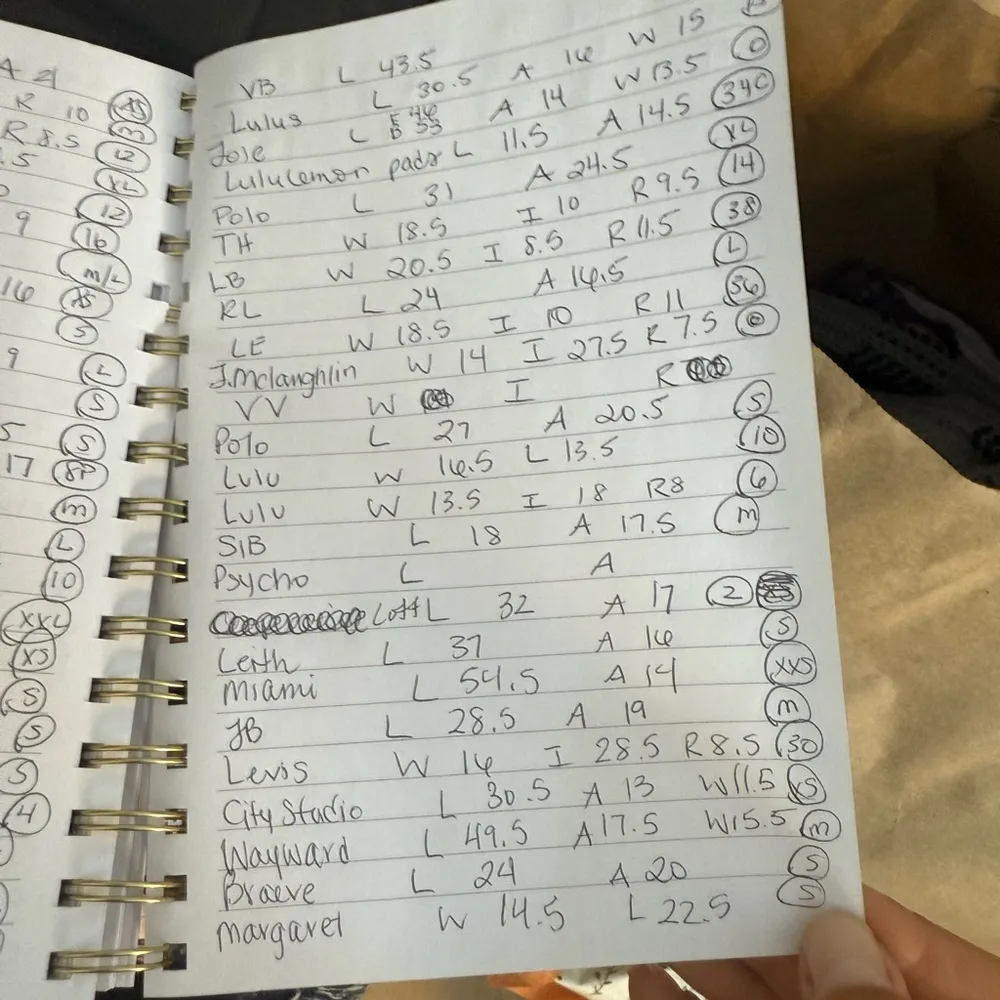 R 10 XS
R 8.5 m
.5 12
XL
12
9 16
m/L
16 XS
S
9 L
S
5 S
17
m
L
10
XXL
XS
S
S
S
4
VB L 43.5
Lulus L 30.5 A 16 W 15
Jose L F 46 B 33 A 14 W 13.5 0
Lululemon pads L 11.5 A 14.5 34C
Polo L 31 A 24.5 XL
TH W 18.5 I 10 R 9.5 14
LB W 20.5 I 8.5 R 11.5 38
RL L 24 A 16.5 L
LE W 18.5 I 10 R 11 36
J.Mclaughlin W 14 I 27.5 R 7.5 0
VV W I R
Polo L 27 A 20.5 S
Lulu W 16.5 L 13.5 10
Lulu W 13.5 I 18 R8 6
SIB L 18 A 17.5 m
Psycho L A
Loft L 32 A 17 2
Leith L 37 A 16 S
Miami L 54.5 A 14 XXS
JB L 28.5 A 19 m
Levis W 16 I 28.5 R 8.5 30
City Studio L 30.5 A 13 W 11.5 XS
Wayward L 49.5 A 17.5 W 15.5 m
Braeve L 24 A 20 S
margaret W 14.5 L 22.5 S